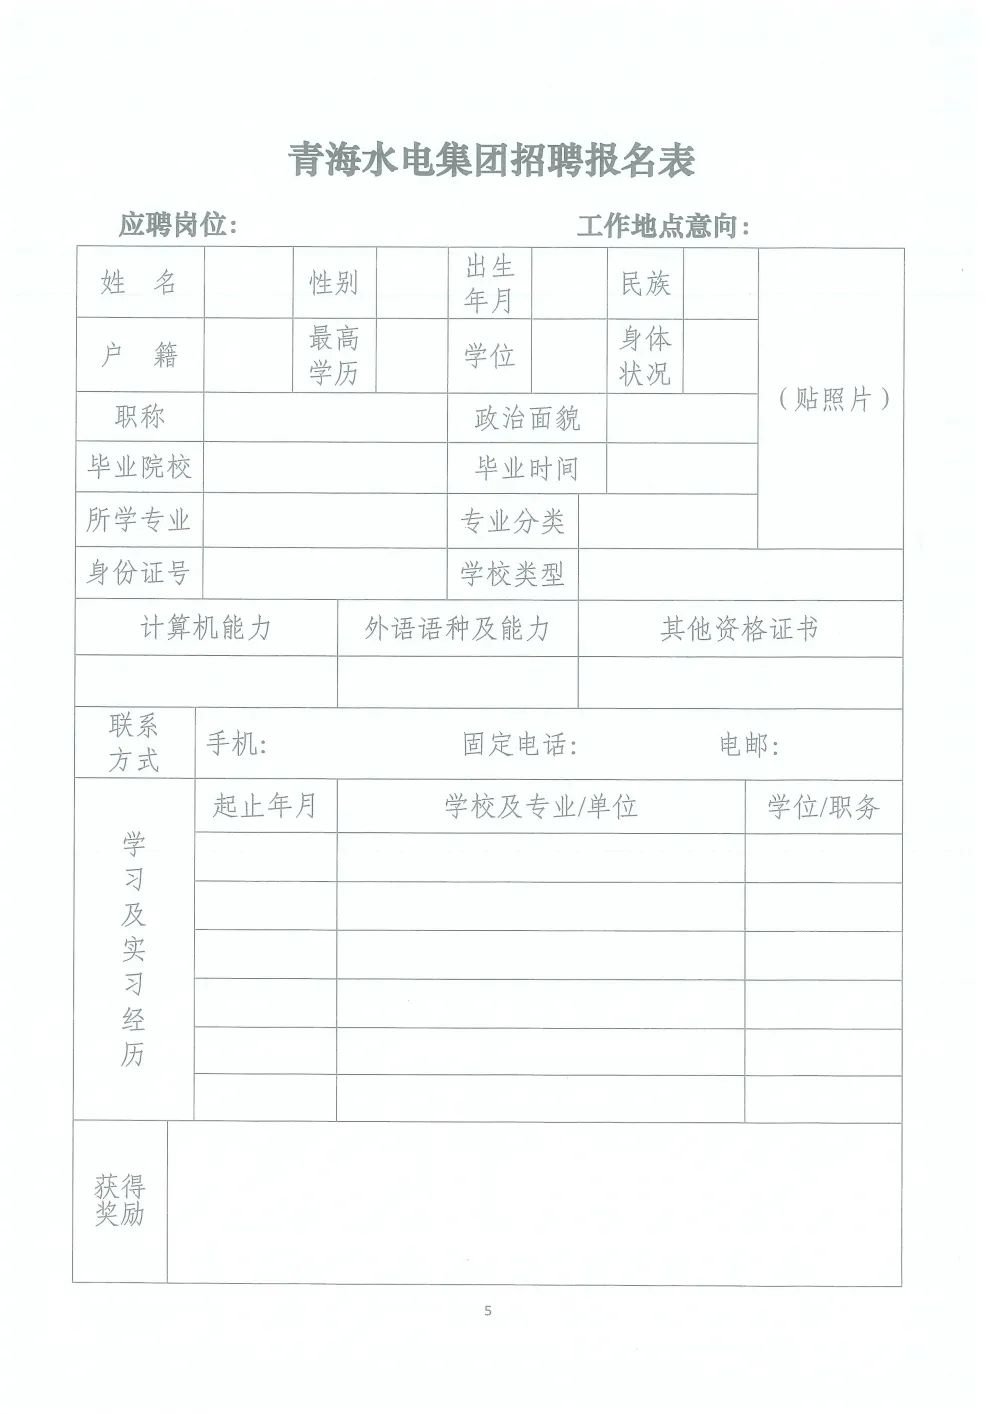 青海水电集团招聘报名表
应聘岗位: 工作地点意向:
姓 名 性别 出生年月 民族
户 籍 最高学历 学位 身体状况
(贴照片)
职称 政治面貌
毕业院校 毕业时间
所学专业 专业分类
身份证号 学校类型
计算机能力 外语语种及能力 其他资格证书
联系方式 手机: 固定电话: 电邮:
学习及实习经历 起止年月 学校及专业/单位 学位/职务
获得奖励
5